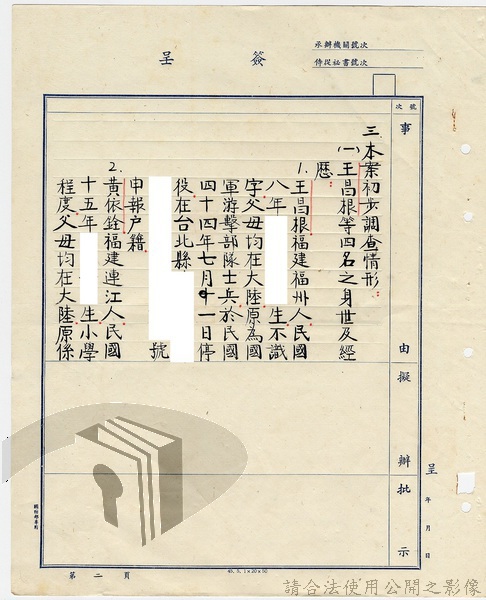 簽呈
承辦機關號次
侍從祕書號次
號次
事由
擬辦
批示
三、本案初步調查情形：
(一)王昌根等四名之身世及經
歷：
1.王昌根福建福州人民國
八年 生不識
字父母均在大陸原為國
軍游擊部隊士兵於民國
四十四年七月十一日停
役在台北縣
號
申報户籍
2.黃依銓福建連江人民國
十五年 生小學
程度父母均在大陸原係
呈
年月日
第二頁
請合法使用公開之影像